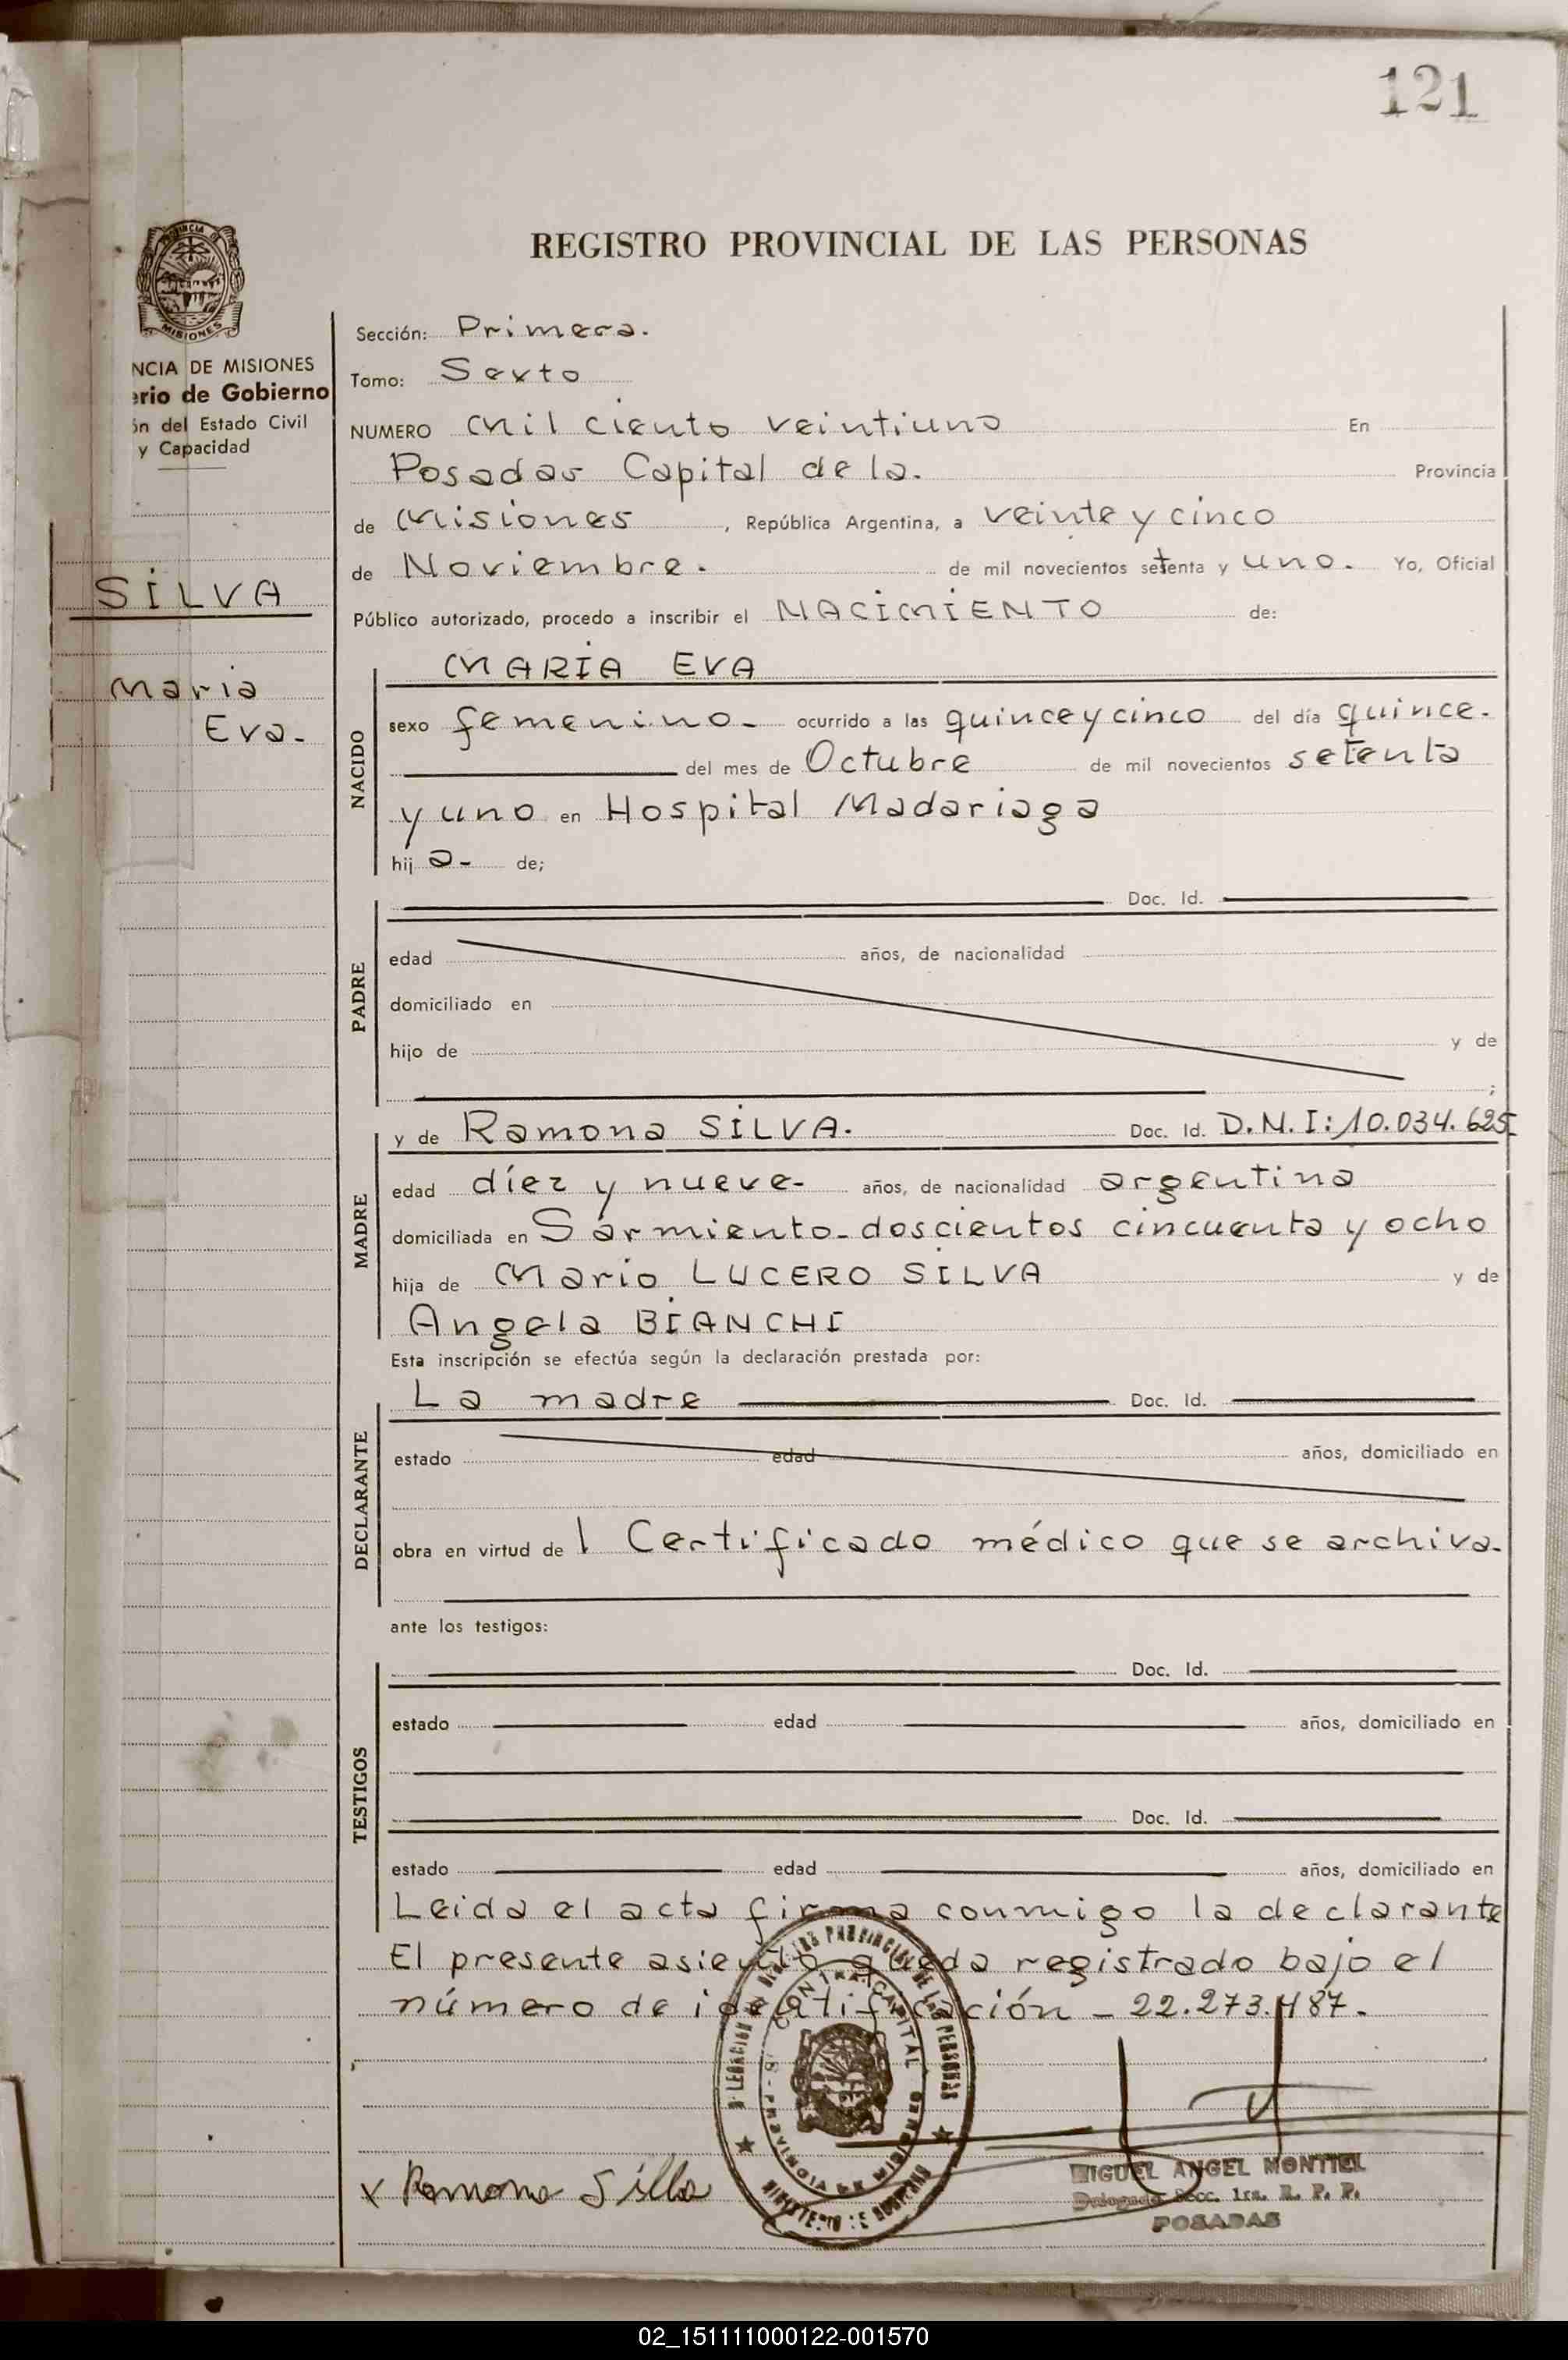 121
REGISTRO PROVINCIAL DE LAS PERSONAS
PROVINCIA DE
MISIONES
NCIA DE MISIONES
erio de Gobierno
ón del Estado Civil
y Capacidad
SILVA
Maria
Eva-
Sección: Primera.
Tomo: Sexto
NUMERO Mil ciento veintiuno En
Posadas Capital de la. Provincia
de Misiones, República Argentina, a veinte y cinco
de Noviembre. de mil novecientos setenta y uno. Yo, Oficial
Público autorizado, procedo a inscribir el NACIMIENTO de:
NACIDO
MARIA EVA
sexo femenino- ocurrido a las quince y cinco del día quince.
del mes de Octubre de mil novecientos setenta
y uno en Hospital Madariaga
hija- de;
PADRE
Doc. Id.
edad años, de nacionalidad
domiciliado en
hijo de y de
;
MADRE
y de Ramona SILVA. Doc. Id. D.N.I: 10.034.625
edad díez y nueve- años, de nacionalidad argentina
domiciliada en Sarmiento-doscientos cincuenta y ocho
hija de Mario LUCERO SILVA y de
Angela BIANCHI
Esta inscripción se efectúa según la declaración prestada por:
DECLARANTE
La madre Doc. Id.
estado edad años, domiciliado en
obra en virtud de l Certificado médico que se archiva.
ante los testigos:
TESTIGOS
Doc. Id.
estado edad años, domiciliado en
Doc. Id.
estado edad años, domiciliado en
Leida el acta firma conmigo la declarante
El presente asiento queda registrado bajo el
número de identificación - 22.273.487.
x Ramona Silba
MIGUEL ANGEL MONTIEL
Delegado Secc. 1ra. R. P. P.
POSADAS
02_151111000122-001570